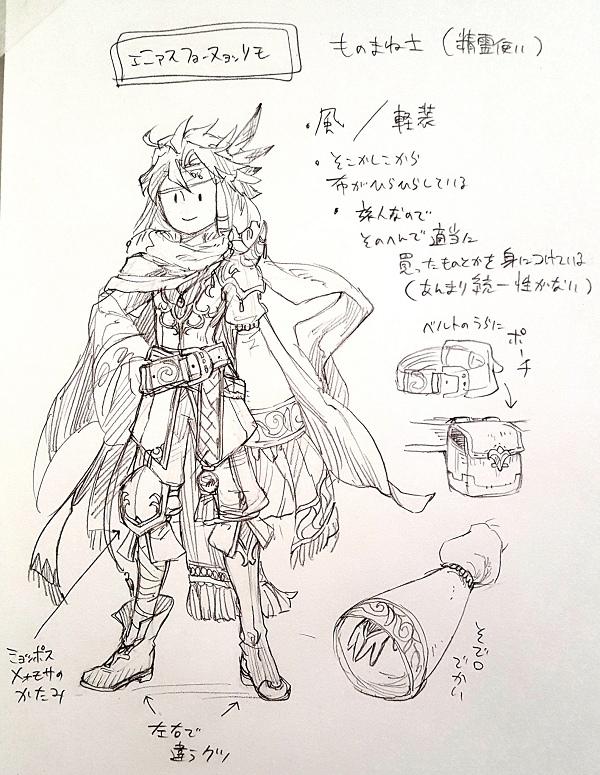 エニアスフォーヌョンリモ
ものまね士（精霊使い）
・風／軽装
・そこかしこから
布がひらひらしている
・旅人なので
そのへんで適当に
買ったものとかを身につけている
（あんまり統一性がない）
ベルトのうらに
ポーチ
ミョンポス
メメモサの
かたみ
左右で
違うクツ
そで口
でかい